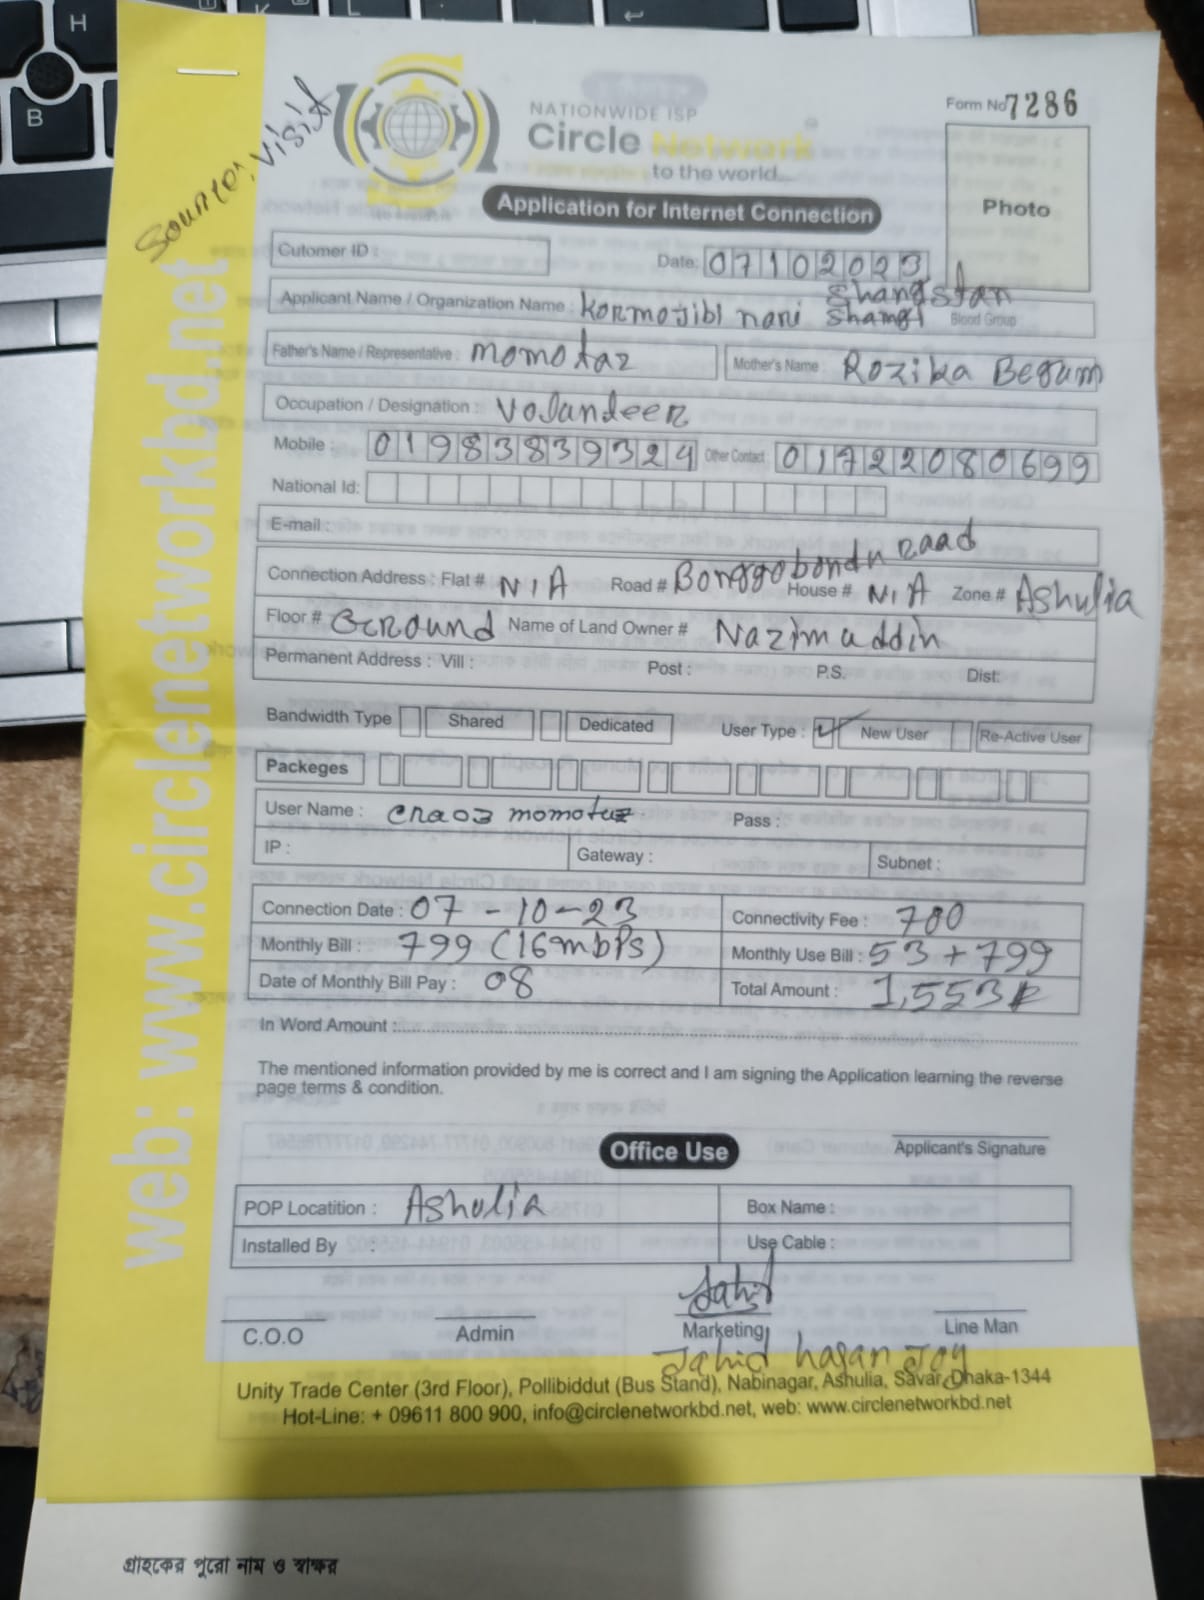 H
K
L
B
Source: Visit
NATIONWIDE ISP
Form No 7286
Circle Network
to the world...
Photo
Application for Internet Connection
Cutomer ID :
Date: 07102023
Shangstan
Applicant Name / Organization Name : Kormojibi nari Shamgi Blood Group
Father's Name / Representative : momotaz Mother's Name : Rozika Begum
Occupation / Designation : Volandeer
Mobile : 01983839324 Other Contact 01722080699
National Id:
E-mail :
Connection Address : Flat # N/A Road # Bonggobondu Raad House # N/A Zone # Ashulia
Floor # Ground Name of Land Owner # Nazimuddin
Permanent Address : Vill : Post : P.S. Dist:
Bandwidth Type Shared Dedicated User Type : New User Re-Active User
Packeges
User Name : cna03 momotaz Pass :
IP : Gateway : Subnet :
Connection Date : 07-10-23 Connectivity Fee : 700
Monthly Bill : 799 (16mbPs) Monthly Use Bill : 53+799
Date of Monthly Bill Pay : 08 Total Amount : 1,553
In Word Amount :
The mentioned information provided by me is correct and I am signing the Application learning the reverse
page terms & condition.
Office Use
Applicant's Signature
POP Locatition : Ashulia Box Name :
Installed By : Use Cable :
Jahid
C.O.O Admin Marketing Line Man
Jahid hasan Joy
Unity Trade Center (3rd Floor), Pollibiddut (Bus Stand), Nabinagar, Ashulia, Savar, Dhaka-1344
Hot-Line: + 09611 800 900, info@circlenetworkbd.net, web: www.circlenetworkbd.net
web: www.circlenetworkbd.net
গ্রাহকের পুরো নাম ও স্বাক্ষর